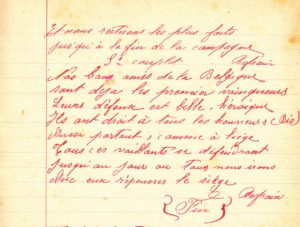 Et nous resterons les plus forts
jusqu'à la fin de la campagne
5e couplet Refrain
Nos bons amis de la Belgique
sont déjà les premier vainqueurs
Leurs défense est belle, héroïque
Ils ont droit à tous les honneurs (Bis)
Aussi partout, comme à Liège
Tous ces vaillants se défendront
jusqu'au jour ou tous nous irons
Avec eux repousser le siège
Refrain
Fin